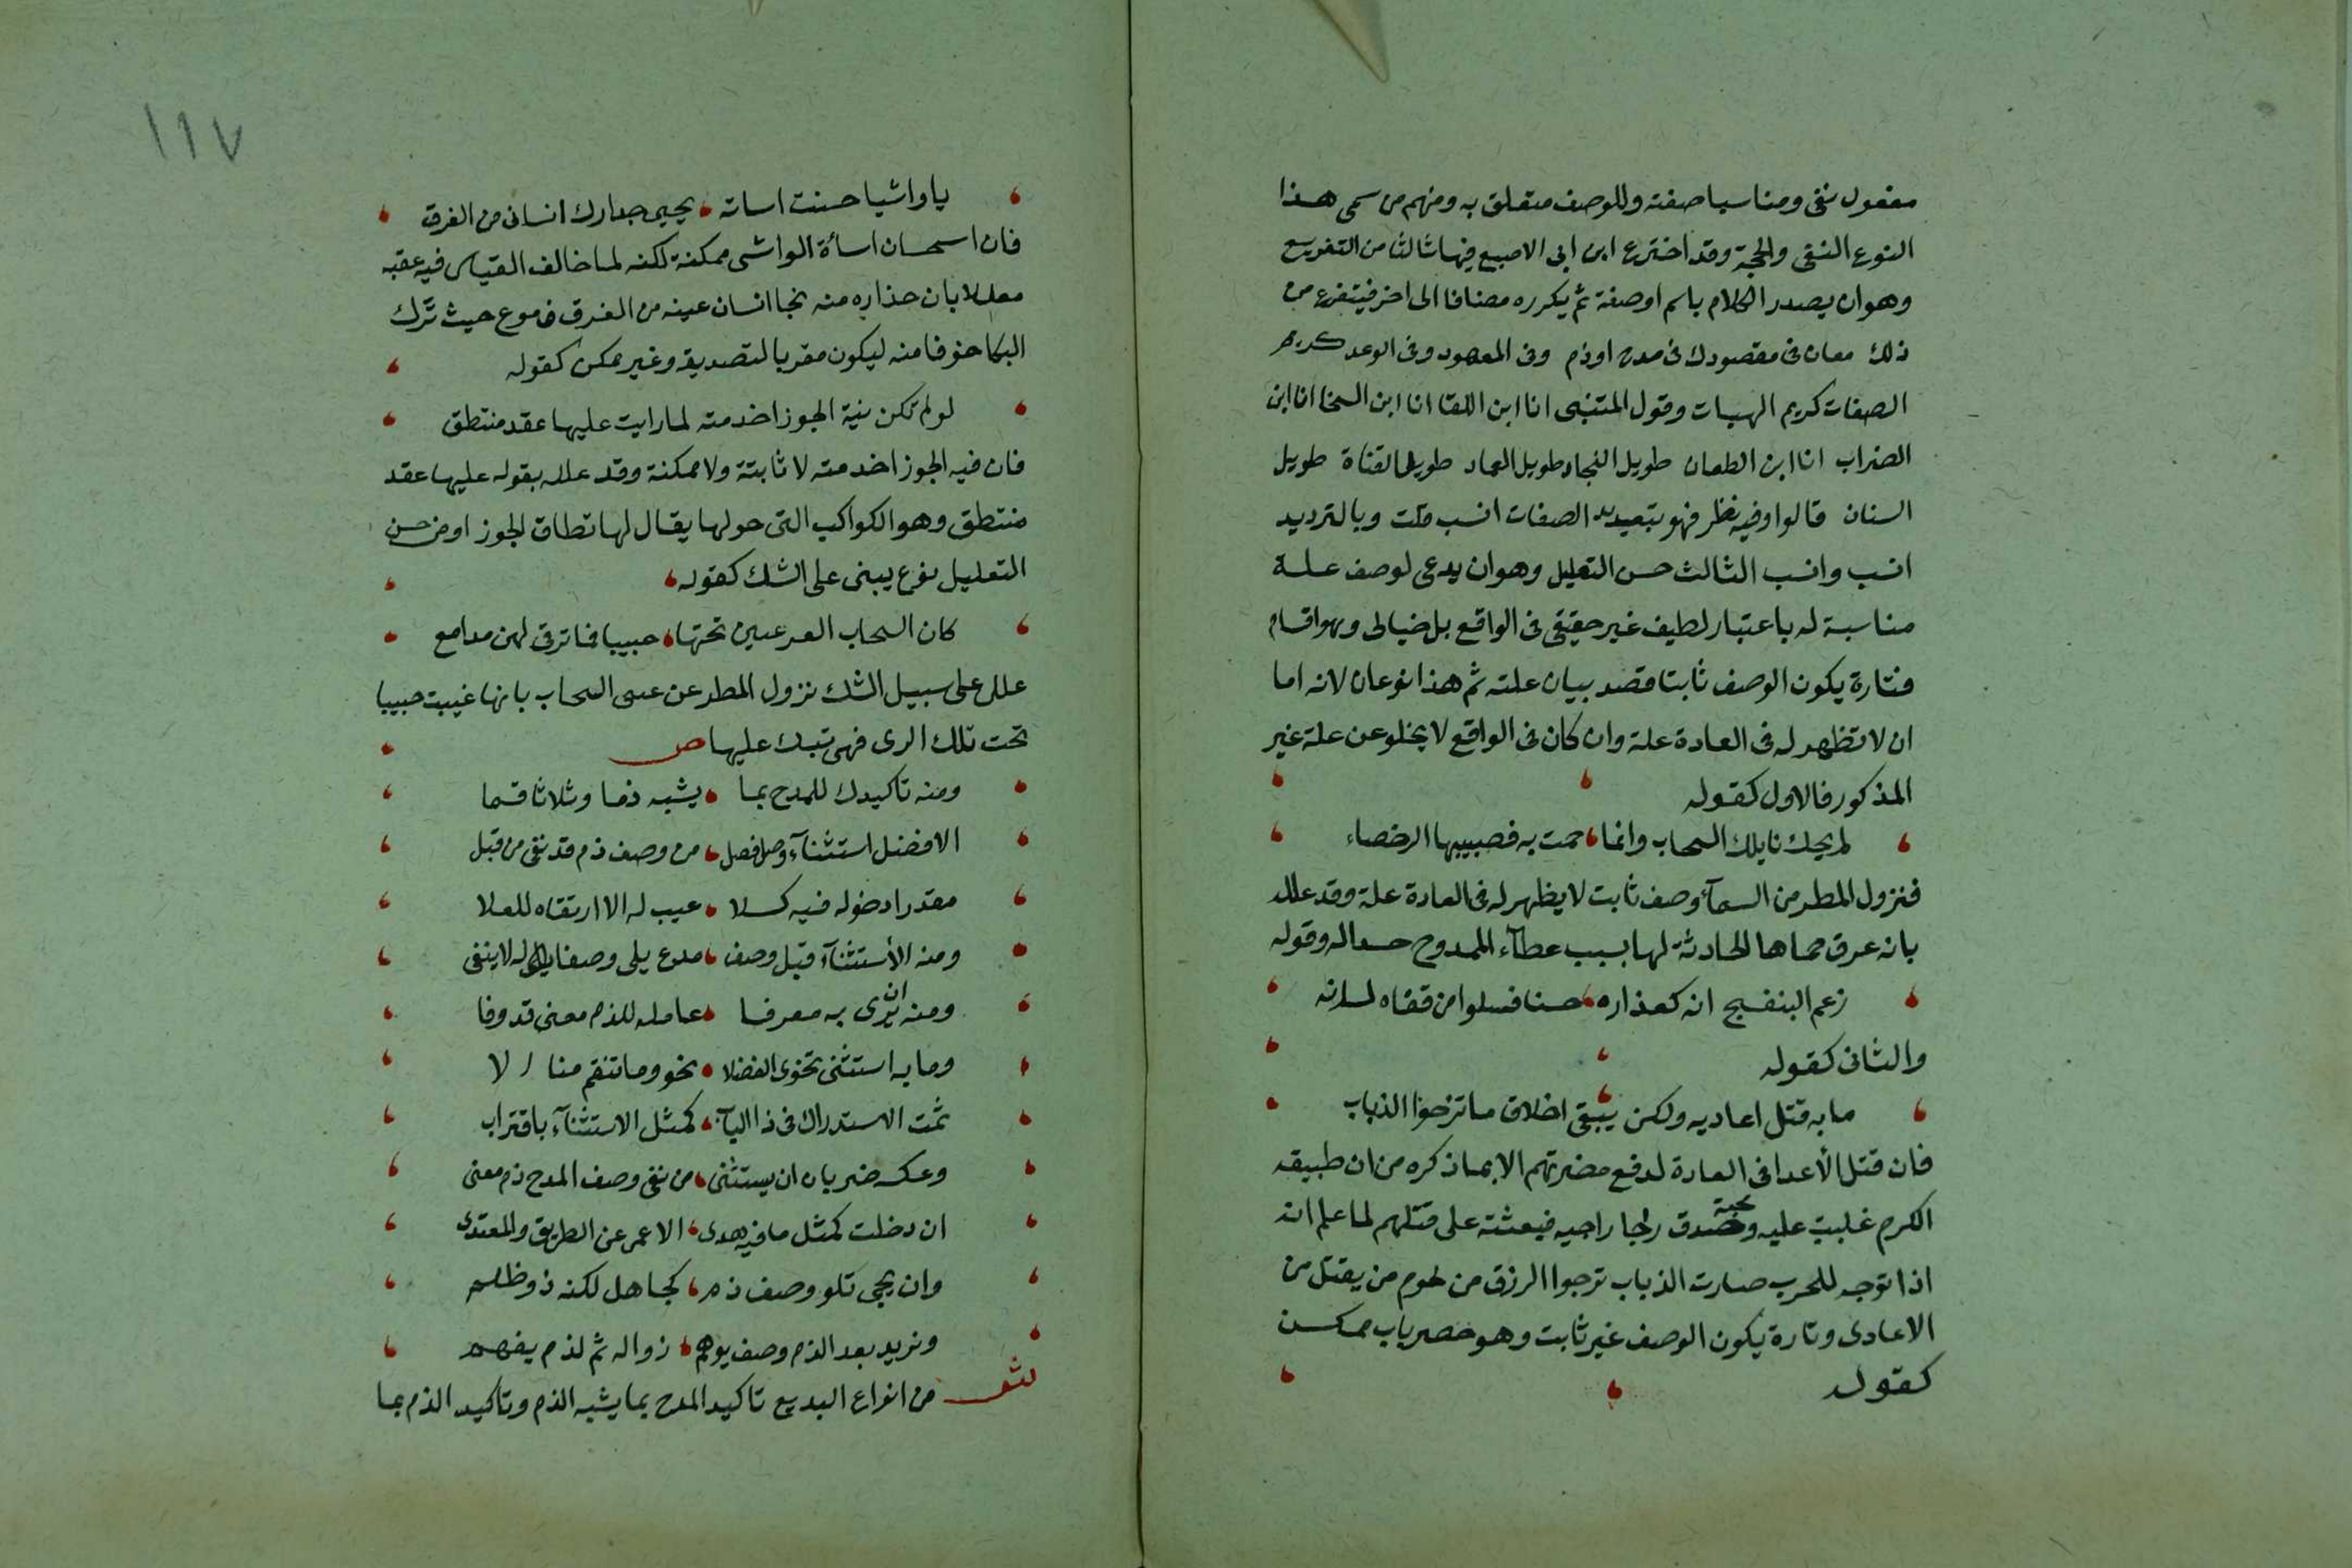 مفعول نفى ومناسبا صفته وللوصف متعلق به ومنهم من سمى هذا
النوع النفى والجحد وقد اخترع ابن ابى الاصبع فيها ثالثا من التفريع
وهو ان يصدر الكلام باسم او صفة ثم يكرره مضافا الى اخر فيتفرع من
ذلك معان فى مقصودك فى مدح او ذم وفى المعهود وفى الوعد كريم
الصفات كريم الهبات وقول المتنبى انا ابن اللقا انا ابن السخا انا ابن
الضراب انا ابن الطعان طويل النجاد طويل العماد طويل القناة طويل
السنان قالوا وفيه نظر فهو بتعديد الصفات انسب قلت وبالترديد
انسب وانسب الثالث حسن التعليل وهو ان يدعى لوصف علة
مناسبة له باعتبار لطيف غير حقيقى فى الواقع بل خيالى وهو اقسام
فتارة يكون الوصف ثابتا قصد بيان علته ثم هذا نوعان لانه اما
ان لا تظهر له فى العادة علة وان كان فى الواقع لا يخلو عن علة غير
المذكور فالاول كقوله
لم يحك نايلك السحاب وانما حمت به فصبيبها الرخصاء
فنزول المطر من السمآء وصف ثابت لا يظهر له فى العادة علة وقد علله
بانه عرق حماها الحادثة لها بسبب عطآء الممدوح حسدا له وقوله
زعم البنفسج انه كعذاره حسنا فسلوا من قفاه لسانه
والثانى كقوله
ما به قتل اعاديه ولكن يتقى اخلاف ما ترجوا الذياب
فان قتل الأعدا فى العادة لدفع مضرتهم الا بما ذكره من ان طبيقه
الكرم غلبت عليه ومحبة صدق رجا راجيه فبعثته على قتلهم لما علم انه
اذا توجه للحرب صارت الذياب ترجوا الرزق من لحوم من يقتل من
الاعادى وتارة يكون الوصف غير ثابت وهو ضربان ممكن
كقوله
١١٧
يا واشيا حسنت اساته يجيى حذارك انسانى من الغرق
فان استحسان اسأة الواشى ممكنة لكنه لما خالف القياس فيه عقبه
معللا بان حذاره منه نجا انسان عينه من الغرق فى دموع حيث ترك
البكا خوفا منه ليكون مقربا لتصديقه وغير ممكن كقوله
لو لم تكن نية الجوزا خدمته لما رايت عليها عقد منتطق
فان فيه الجوزا خدمته لا ثابتة ولا ممكنة وقد علله بقوله عليها عقد
منتطق وهو الكواكب التى حولها يقال لها نطاق الجوزا ومن حسن
التعليل نوع يبنى على الشك كقوله
كان السحاب الغر غيبن تحتها حبيبا فما ترقى لهن مدامع
علل على سبيل الشك نزول المطر عن السحاب بانها غيبت حبيبا
تحت تلك الربى فهى تبك عليها ص
ومنه تاكيدك للمدح بما يشبه ذما وثلاثا قسما
الافضل استثنآء وصل فصل من وصف ذم قد نفى من قبل
مقدرا دخوله فيه كلا عيب له الا ارتقاه للعلا
ومنه الأستثنآء قبل وصف مدح يلى وصفا له لا ينفى
ومنه ان يرى به معرفا عامله للذم معنى قد وفا
وما به استثنى تحوى الفضلا نحو وما تنقم منا الا
تمت الاستدراك فى ذا الباب كمثل الاستثنآء باقتراب
وعكسه ضربان ان يستثنى من نفى وصف المدح ذم معنى
ان دخلت كمثل ما فيه هدى الا عمى عن الطريق والمعتدى
وان يجى تلو وصف ذم كجاهل لكنه ذو ظلم
ونزيد بعد الذم وصف يوهم زواله ثم لذم يفهم
ش من انواع البديع تاكيد المدح بما يشبه الذم وتاكيد الذم بما